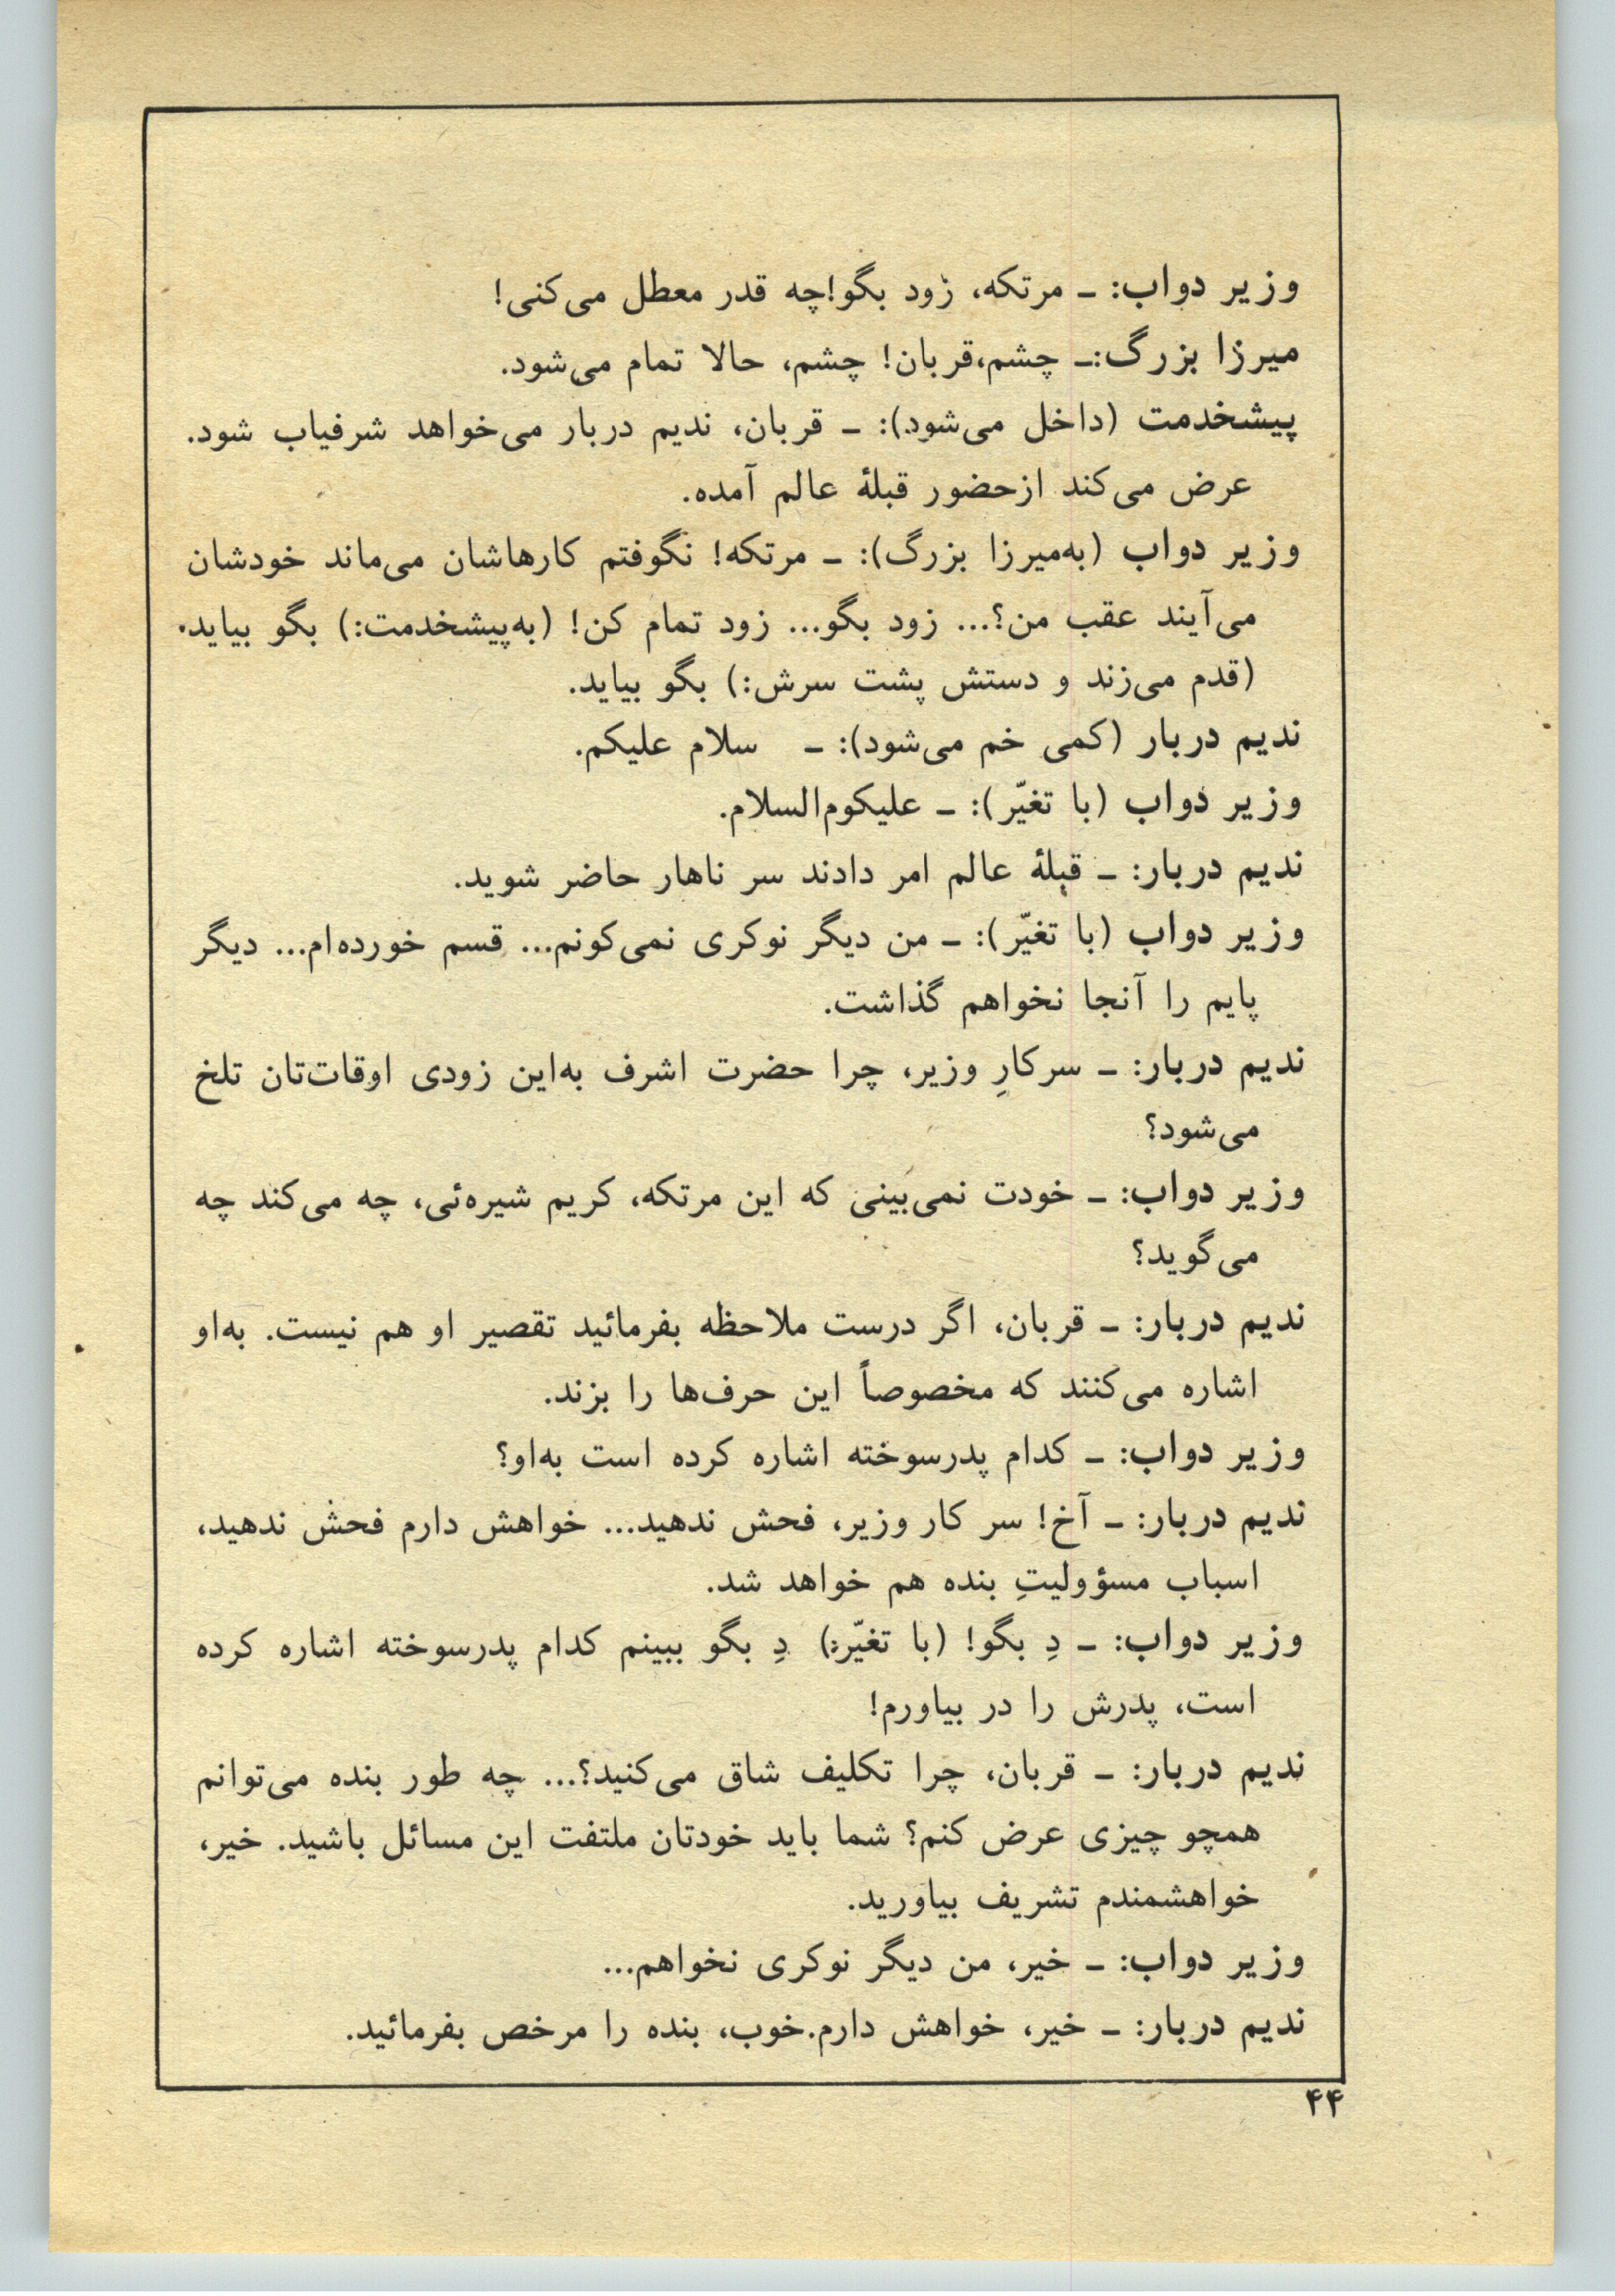 وزیر دواب: ــ مرتکه، زود بگو!چه قدر معطل می‌کنی!
میرزا بزرگ:ــ چشم،قربان! چشم، حالا تمام می‌شود.
پیشخدمت (داخل می‌شود): ــ قربان، ندیم دربار می‌خواهد شرفیاب شود.
عرض می‌کند ازحضور قبلهٔ عالم آمده.
وزیر دواب (به‌میرزا بزرگ): ــ مرتکه! نگوفتم کارهاشان می‌ماند خودشان
می‌آیند عقب من؟... زود بگو... زود تمام کن! (به‌پیشخدمت:) بگو بیاید.
(قدم می‌زند و دستش پشت سرش:) بگو بیاید.
ندیم دربار (کمی خم می‌شود): ــ سلام علیکم.
وزیر دواب (با تغیّر): ــ علیکوم‌السلام.
ندیم دربار: ــ قبلهٔ عالم امر دادند سر ناهار حاضر شوید.
وزیر دواب (با تغیّر): ــ من دیگر نوکری نمی‌کونم... قسم خورده‌ام... دیگر
پایم را آنجا نخواهم گذاشت.
ندیم دربار: ــ سرکارِ وزیر، چرا حضرت اشرف به‌این زودی اوقات‌تان تلخ
می‌شود؟
وزیر دواب: ــ خودت نمی‌بینی که این مرتکه، کریم شیره‌ئی، چه می‌کند چه
می‌گوید؟
ندیم دربار: ــ قربان، اگر درست ملاحظه بفرمائید تقصیر او هم نیست. به‌او
اشاره می‌کنند که مخصوصاً این حرف‌ها را بزند.
وزیر دواب: ــ کدام پدرسوخته اشاره کرده است به‌او؟
ندیم دربار: ــ آخ! سر کار وزیر، فحش ندهید... خواهش دارم فحش ندهید،
اسباب مسؤولیتِ بنده هم خواهد شد.
وزیر دواب: ــ دِ بگو! (با تغیّر:) دِ بگو ببینم کدام پدرسوخته اشاره کرده
است، پدرش را در بیاورم!
ندیم دربار: ــ قربان، چرا تکلیف شاق می‌کنید؟... چه طور بنده می‌توانم
همچو چیزی عرض کنم؟ شما باید خودتان ملتفت این مسائل باشید. خیر،
خواهشمندم تشریف بیاورید.
وزیر دواب: ــ خیر، من دیگر نوکری نخواهم...
ندیم دربار: ــ خیر، خواهش دارم.خوب، بنده را مرخص بفرمائید.
۴۴